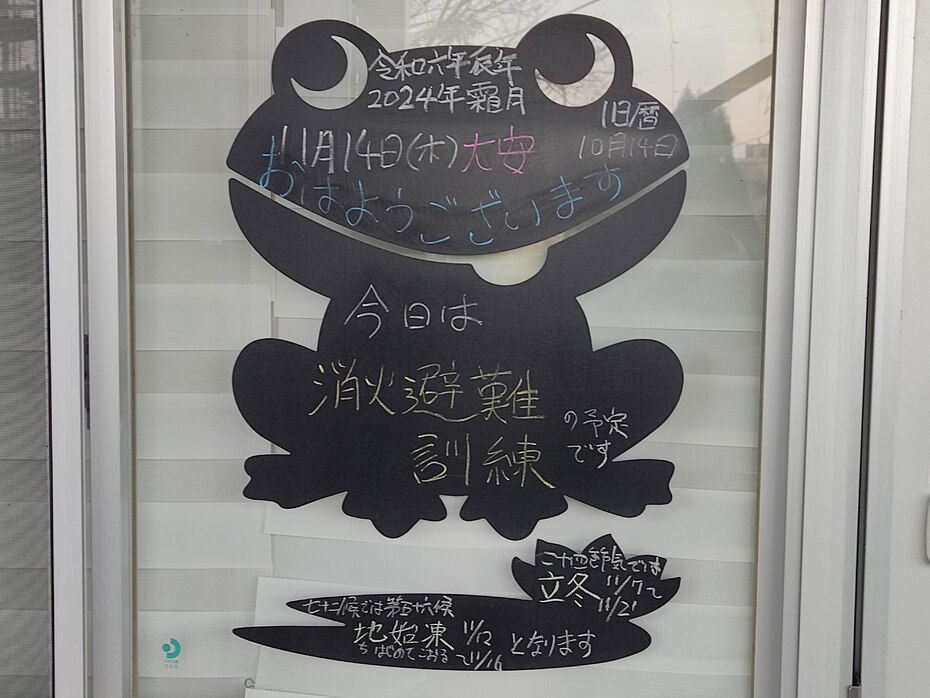 令和六年辰年
2024年霜月
旧暦
11月14日(木)大安
10月14日
おはようございます
今日は
消火避難
訓練
の予定
です
二十四節気では
立冬 11/7~
11/21
七十二候では第五十六候
地始凍 11/12
ちはじめてこおる ~11/16
となります